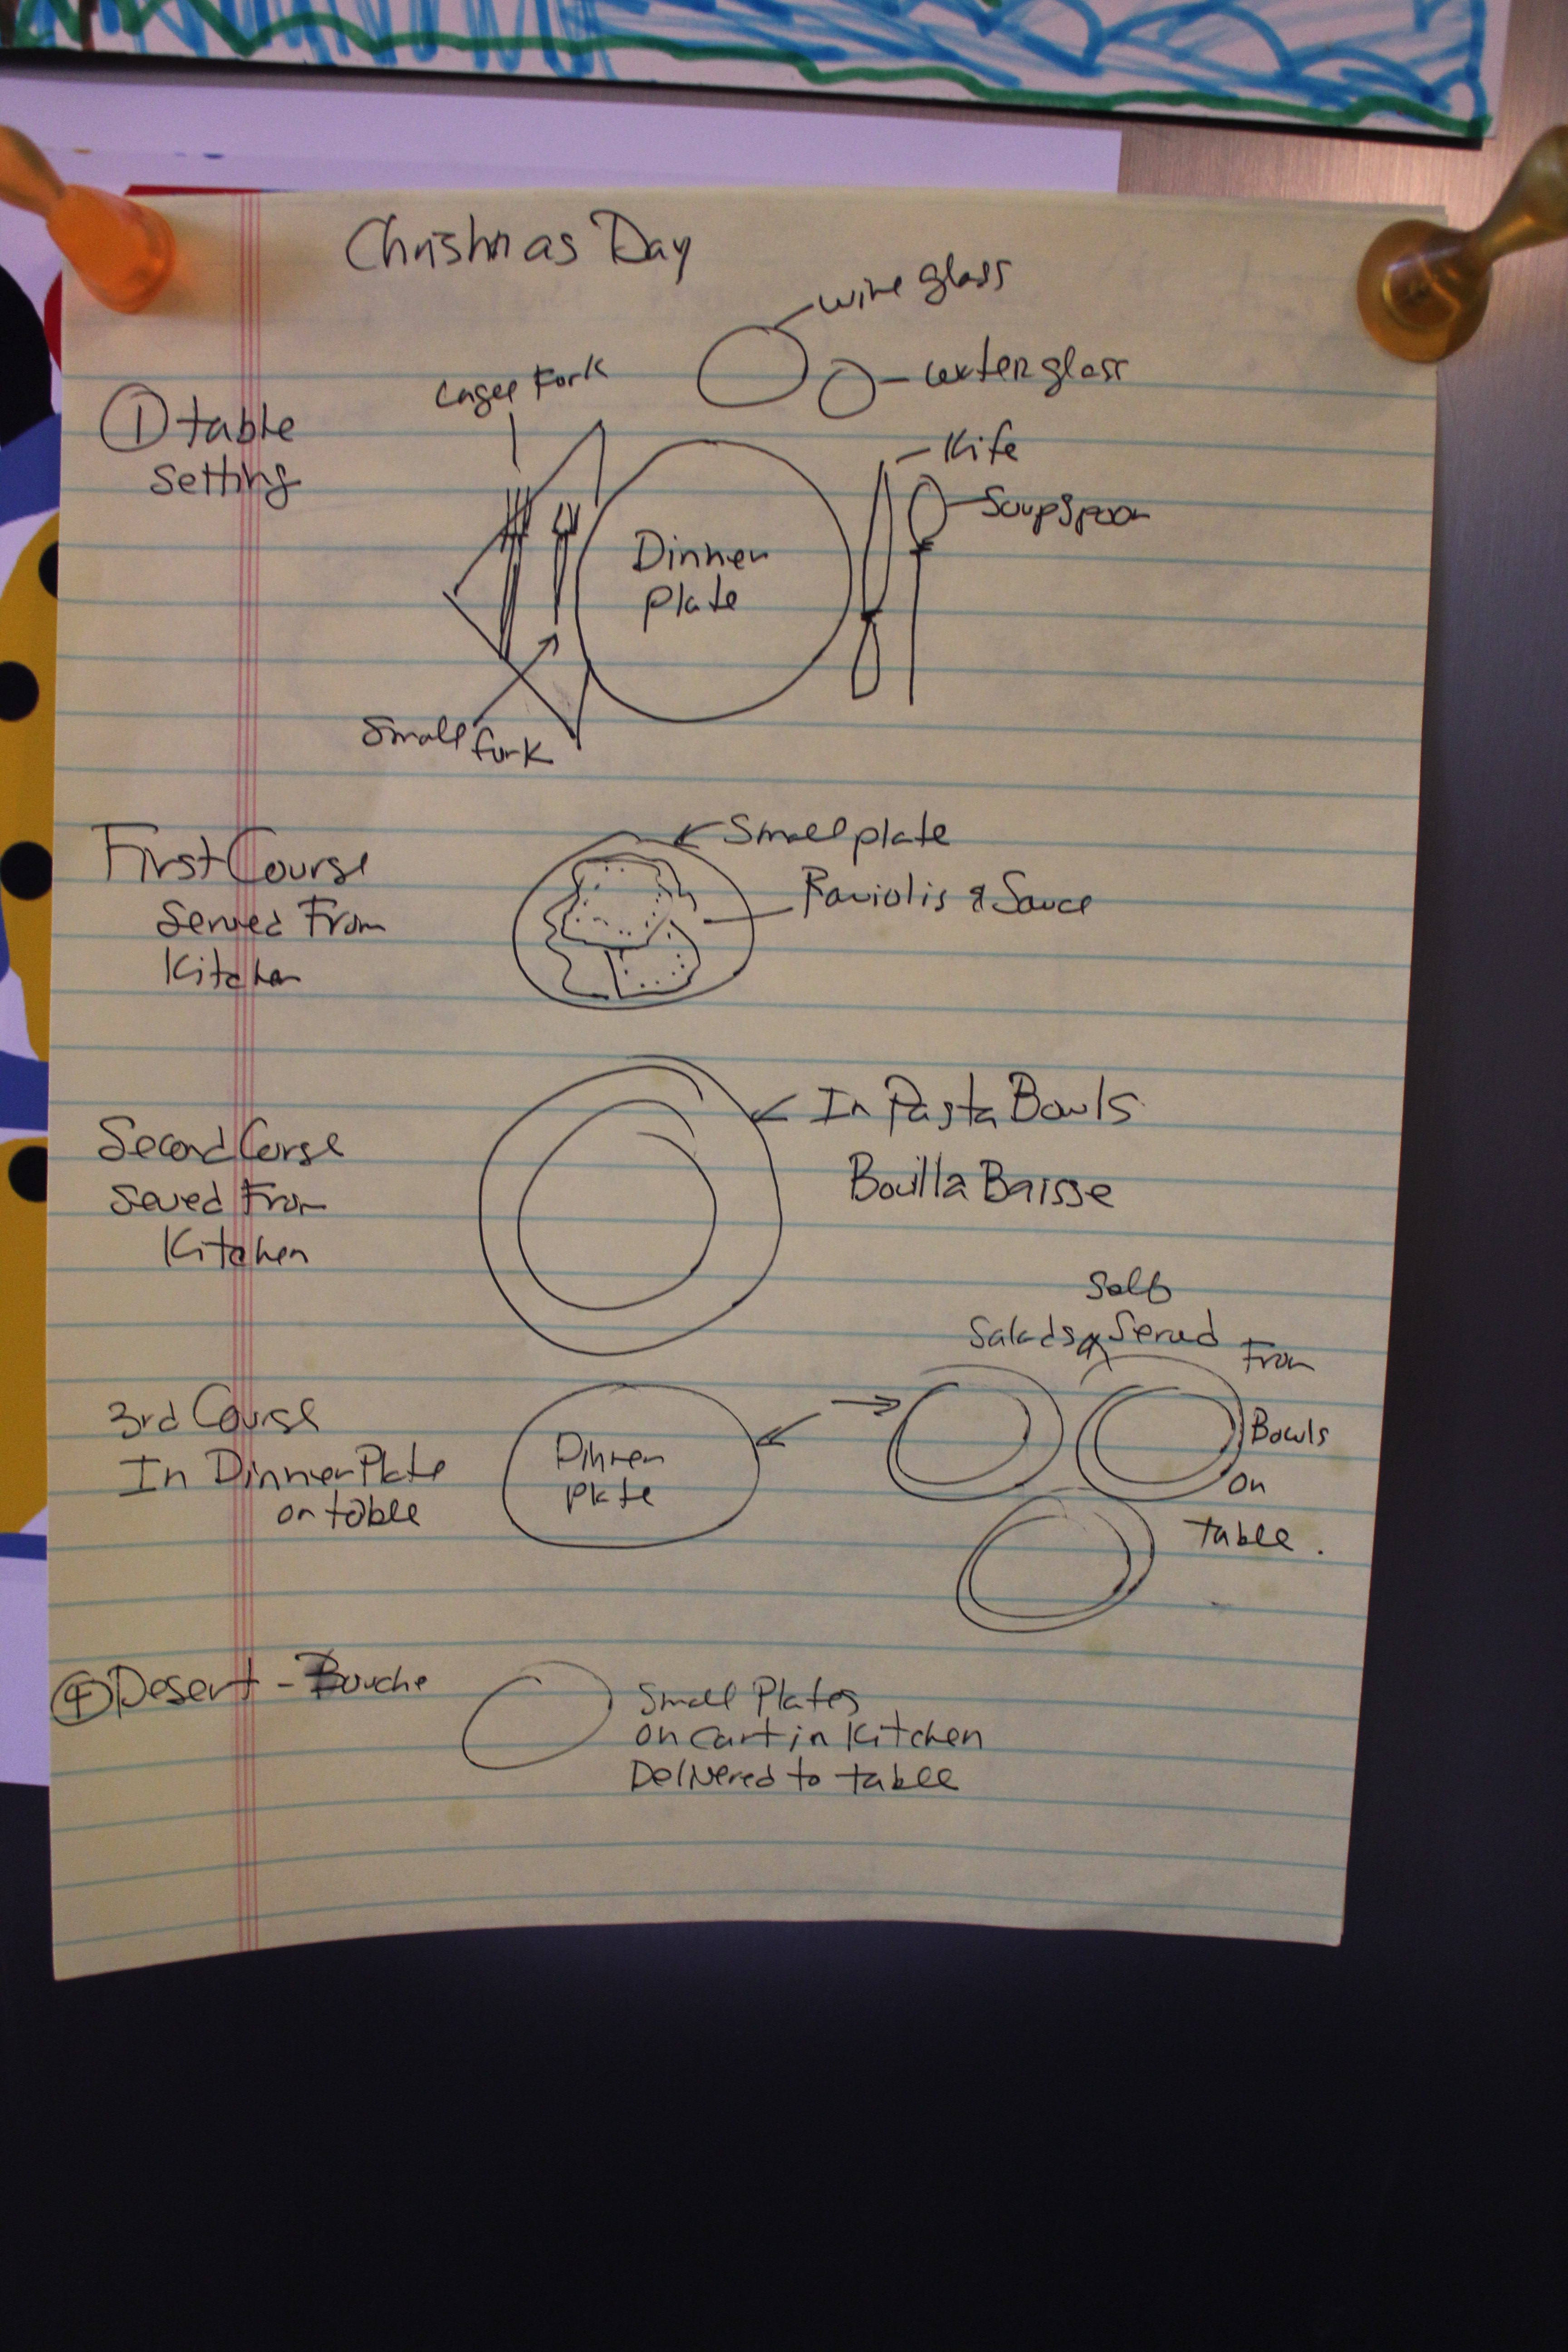 Christmas Day
wine glass
water glass
Large Fork
① table
setting
Kife
Soupspoon
Dinner
plate
Small fork
First Course
Served From
Kitchen
Small plate
Raviolis & Sauce
Second Corse
Seved From
Kitchen
In Pasta Bowls
Bouilla Baisse
Self
Salads Served
From
Bowls
on
table.
3rd Course
In Dinner Plate
on table
Dinner
plate
④ Desert - Bouche
Small Plates
on Cart in Kitchen
Delivered to table